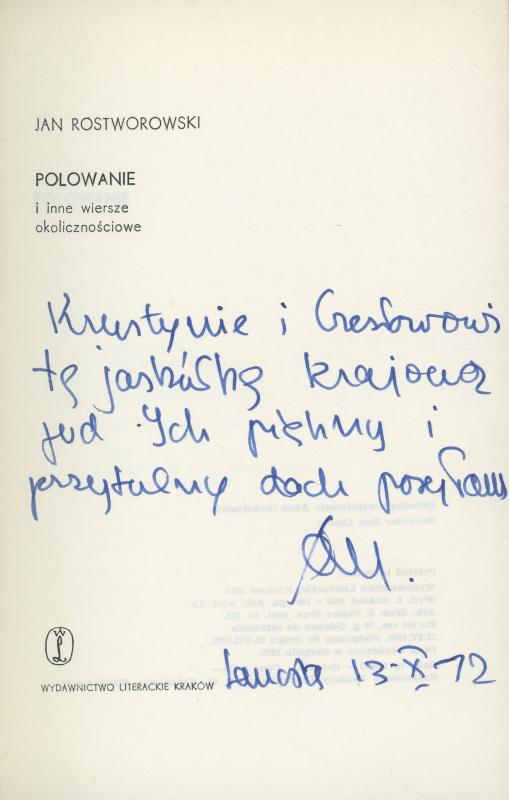 JAN ROSTWOROWSKI
POLOWANIE
i inne wiersze
okolicznościowe
Krystynie i Czesławowi
tę jaskółkę krajową
pod Ich piękny i
przytulny dach posyłam
WYDAWNICTWO LITERACKIE KRAKÓW
13 X 72